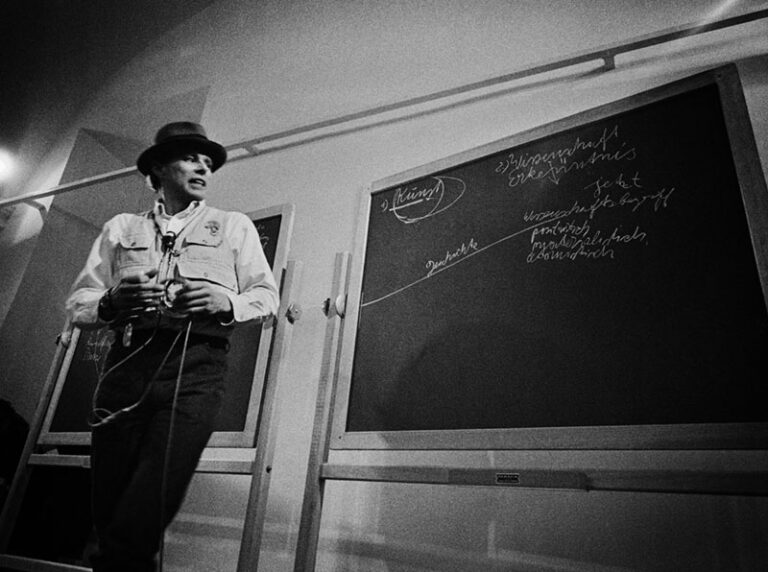 1) Kunst
2) Wissenschaft
Erkenntnis
Jetzt
Geschichte
Wissenschaftsbegriff
positivistisch
materialistisch
atomistisch